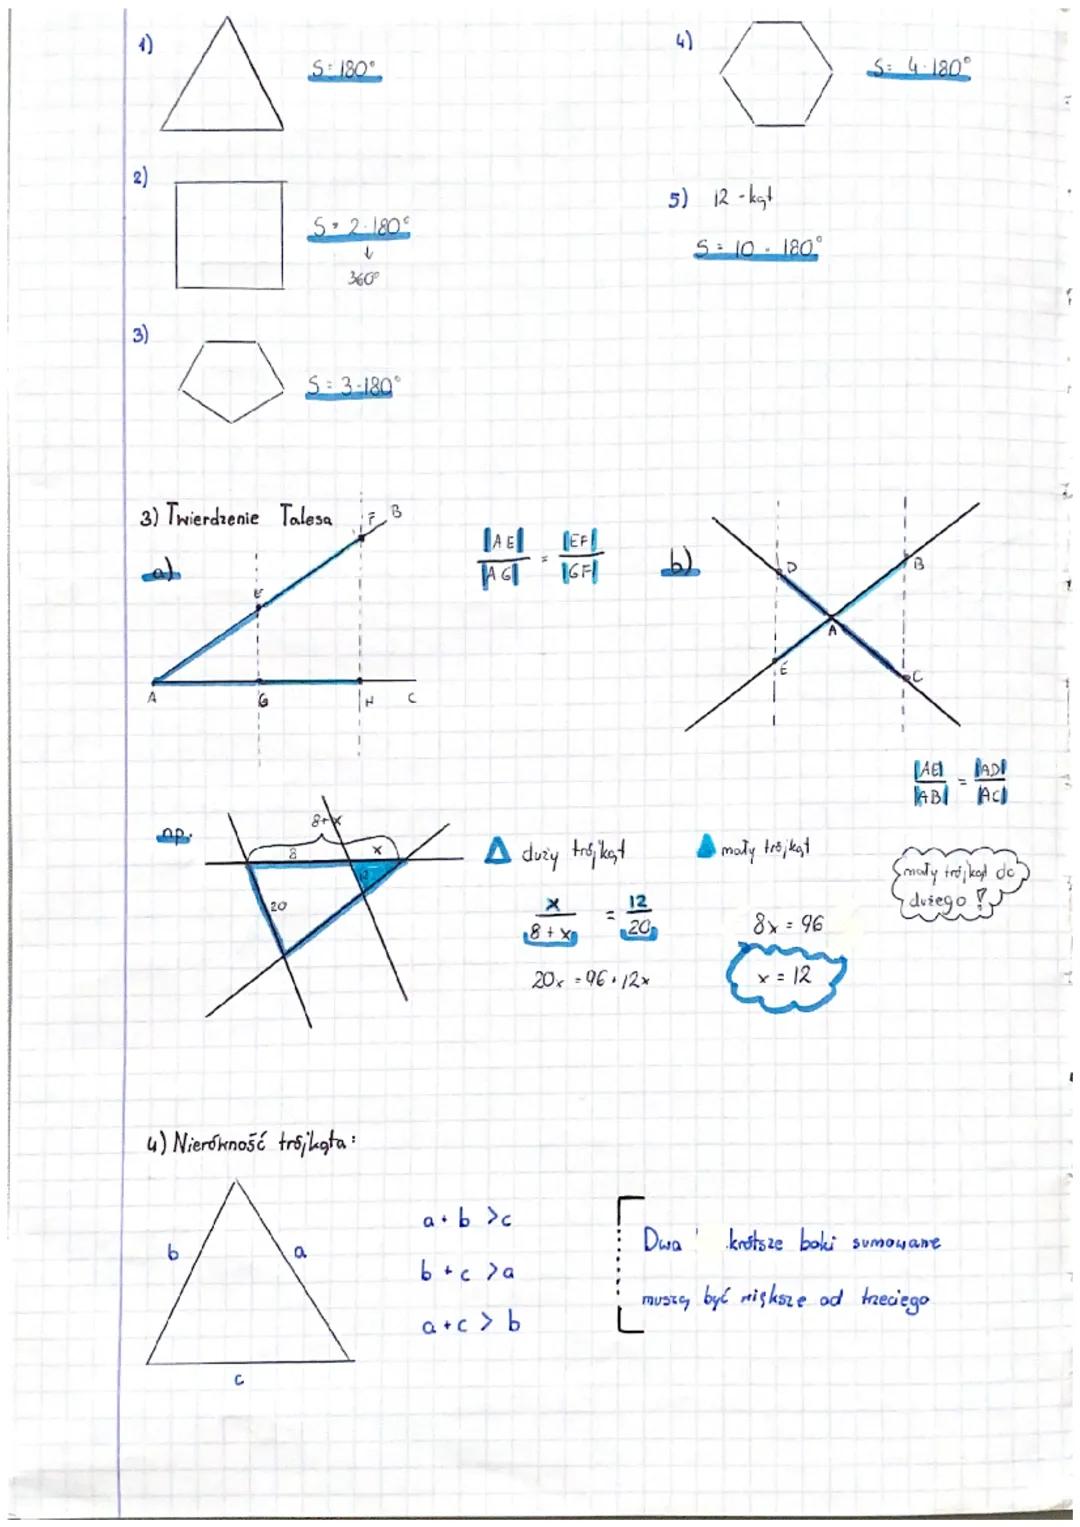 1)
S = 180°
2)
S = 2·180°
↓
360°
3)
S = 3·180°
4)
S = 4·180°
5) 12 - kąt
S = 10 · 180°
3) Twierdzenie Talesa
a)
A E F B G H C
|AE| / |AG| = |EF| / |GF|
b)
D B A E C
|AE| / |AB| = |AD| / |AC|
np.
8+x
8 x
20
12
duży trójkąt
x / 8 + x = 12 / 20
20x = 96 + 12x
mały trójkąt
8x = 96
x = 12
mały trójkąt do
dużego !
4) Nierówność trójkąta:
b a
c
a + b > c
b + c > a
a + c > b
Dwa krótsze boki sumowane
muszą być większe od trzeciego